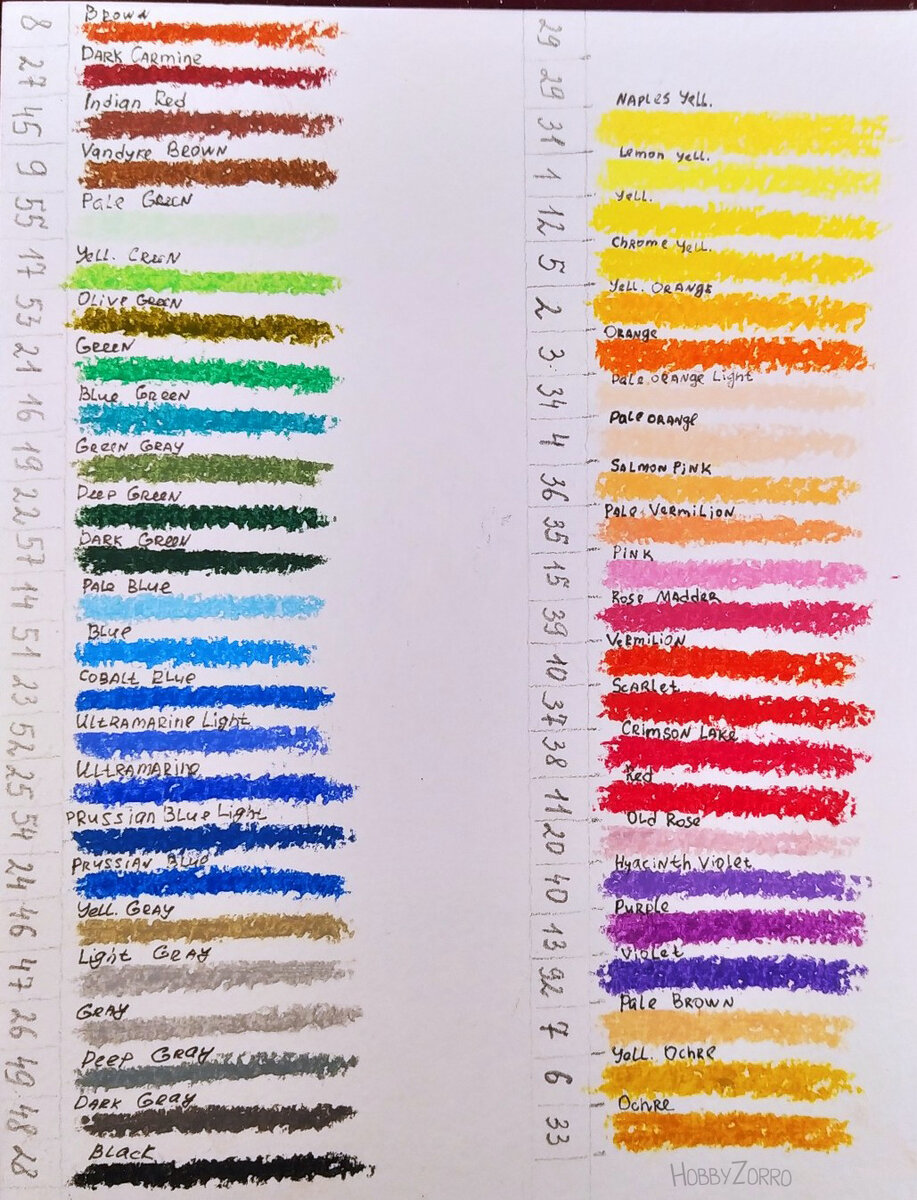 8 Brown
27 Dark Carmine
45 Indian Red
9 Vandyke Brown
55 Pale Green
17 Yell. Green
53 Olive Green
21 Green
16 Blue Green
19 Green Gray
22 Deep Green
57 Dark Green
14 Pale Blue
51 Blue
23 Cobalt Blue
52 Ultramarine Light
25 Ultramarine
54 Prussian Blue Light
24 Prussian Blue
46 Yell. Gray
47 Light Gray
26 Gray
49 Deep Gray
48 Dark Gray
28 Black
29
29
31 Naples Yell.
1 Lemon Yell.
12 Yell.
5 Chrome Yell.
2 Yell. Orange
3 Orange
34 Pale Orange Light
4 Pale Orange
36 Salmon Pink
35 Pale Vermilion
15 Pink
39 Rose Madder
10 Vermilion
37 Scarlet
38 Crimson Lake
11 Red
20 Old Rose
40 Hyacinth Violet
13 Purple
92 Violet
7 Pale Brown
6 Yell. Ochre
33 Ochre
HobbyZorro